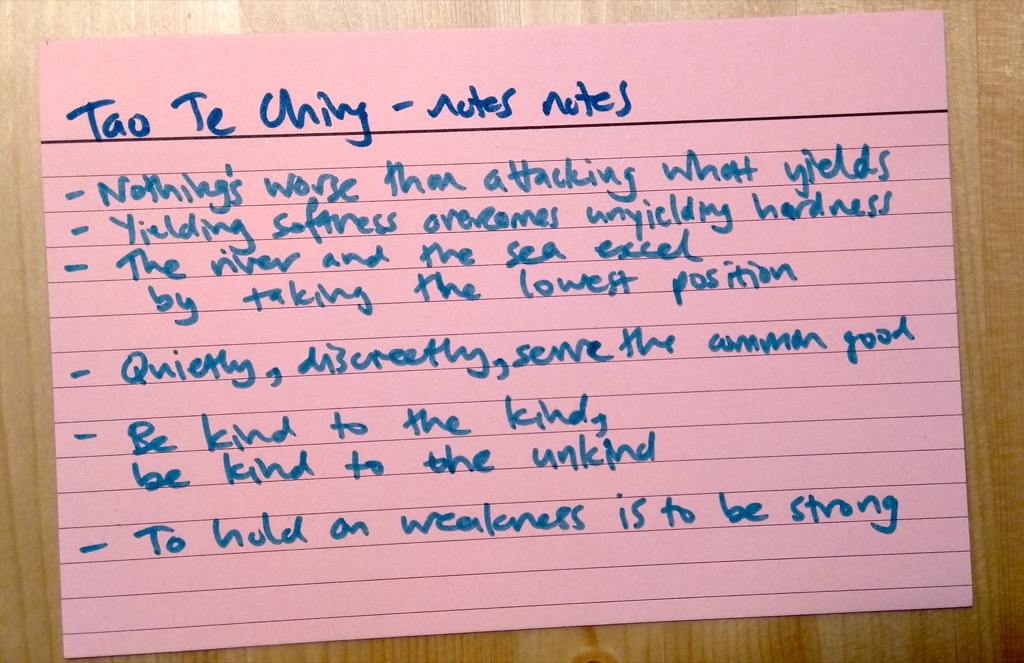 Tao Te Ching - notes notes
- Nothing's worse than attacking what yields
- Yielding softness overcomes unyielding hardness
- The river and the sea excel
by taking the lowest position
- Quietly, discreetly, serve the common good
- Be kind to the kind,
be kind to the unkind
- To hold on weakness is to be strong